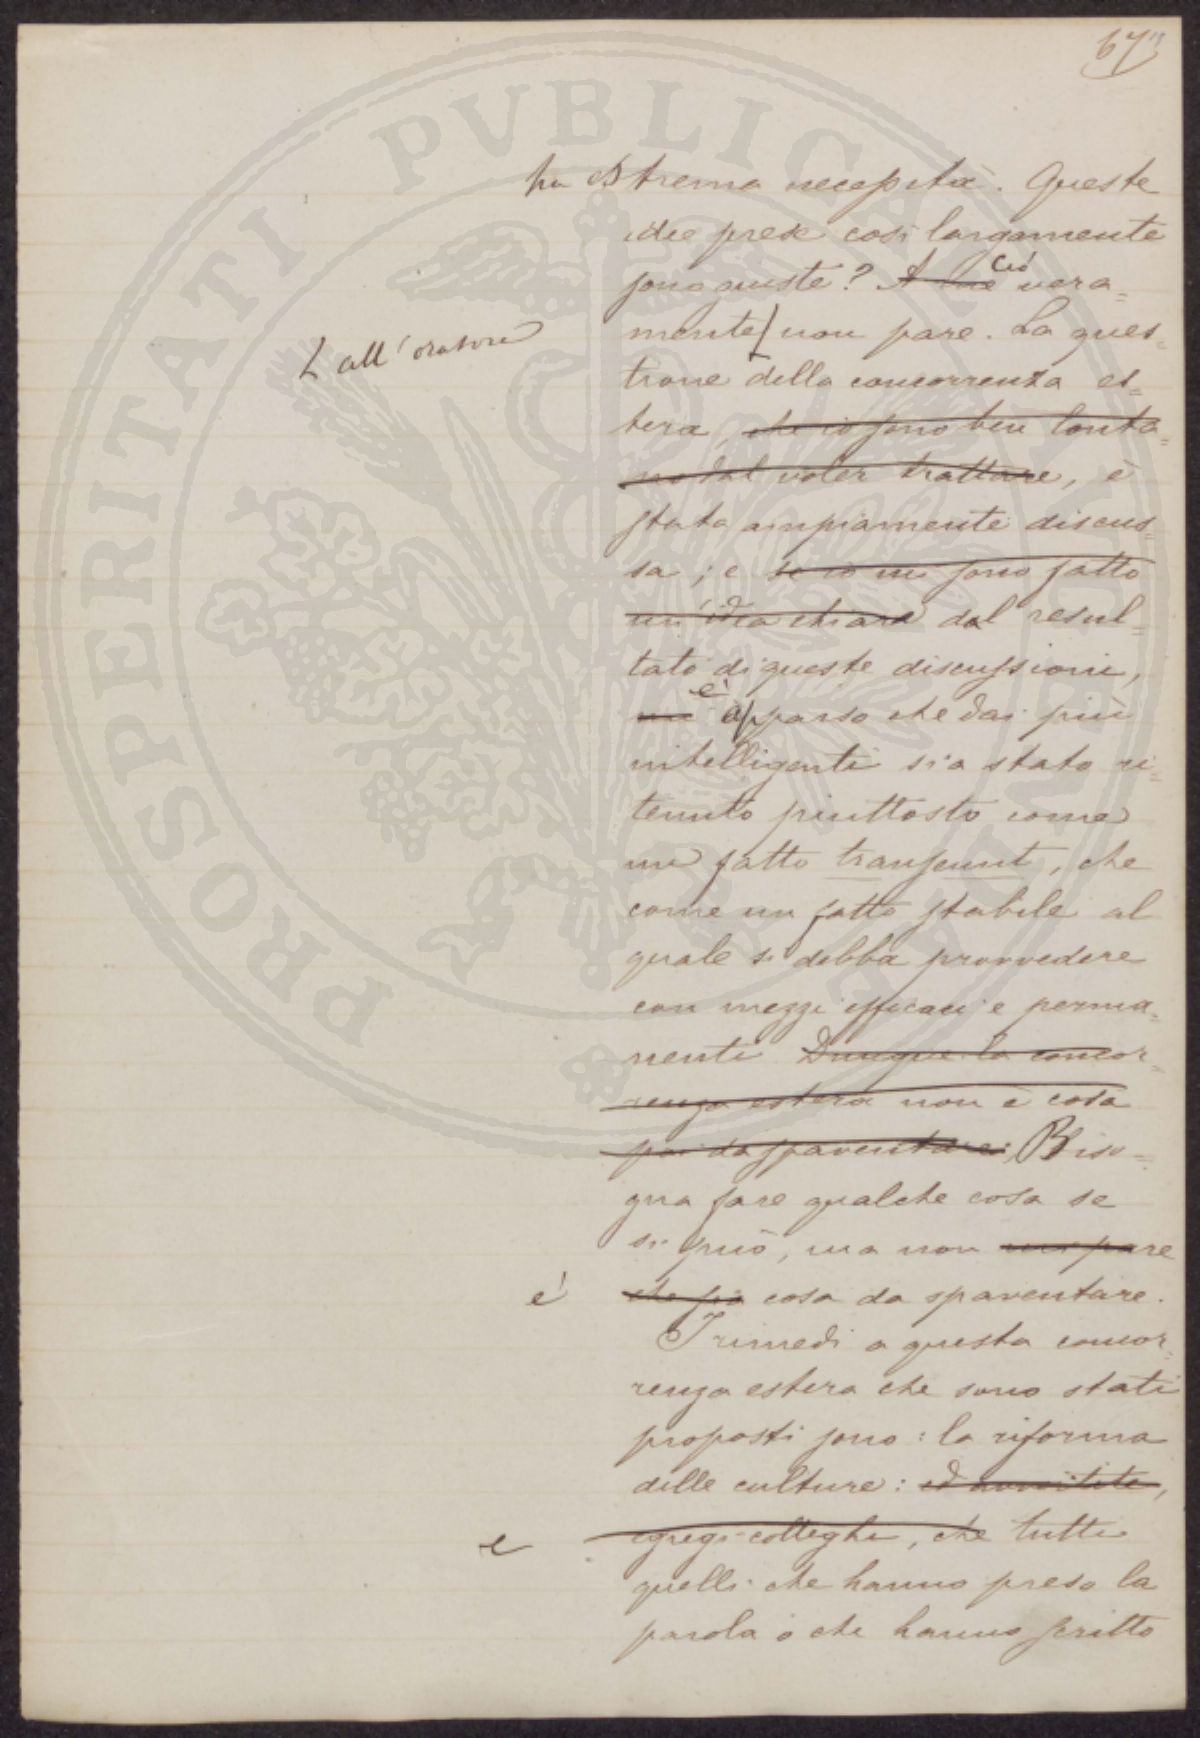 67
PROSPERITATI PUBLICAE
ha Estrema necessità. Queste
idee prese così largamente
sono giuste? A me Ciò vera=
mente non pare. La ques=
all'oratore
tione della concorrenza es=
tera, che io sono ben lonta=
no dal voler trattare, è
stata ampiamente discus=
sa; e se io mi sono fatto
un'idea chiara dal resul=
tato di queste discussioni,
mi è apparso che dai più
intelligenti sia stato ri=
tenuto piuttosto come
un fatto transeunt, che
come un fatto stabile al
quale si debba provvedere
con mezzi efficaci e perma=
nenti Dunque la concor=
renza estera non è cosa
poi da spaventarci, Biso=
gna fare qualche cosa se
si può, ma non mi pare
è che sia cosa da spaventare.
I rimedi a questa concor=
renza estera che sono stati
proposti sono: la riforma
delle culture: ed avvertite,
e egregi colleghi, che tutti
quelli che hanno preso la
parola o che hanno scritto